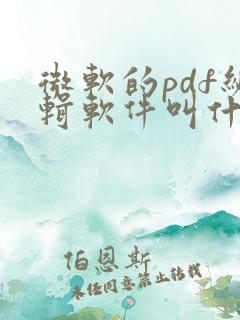 微軟的pdf編
輯軟件叫什
伯恩斯
未经同意禁止转载